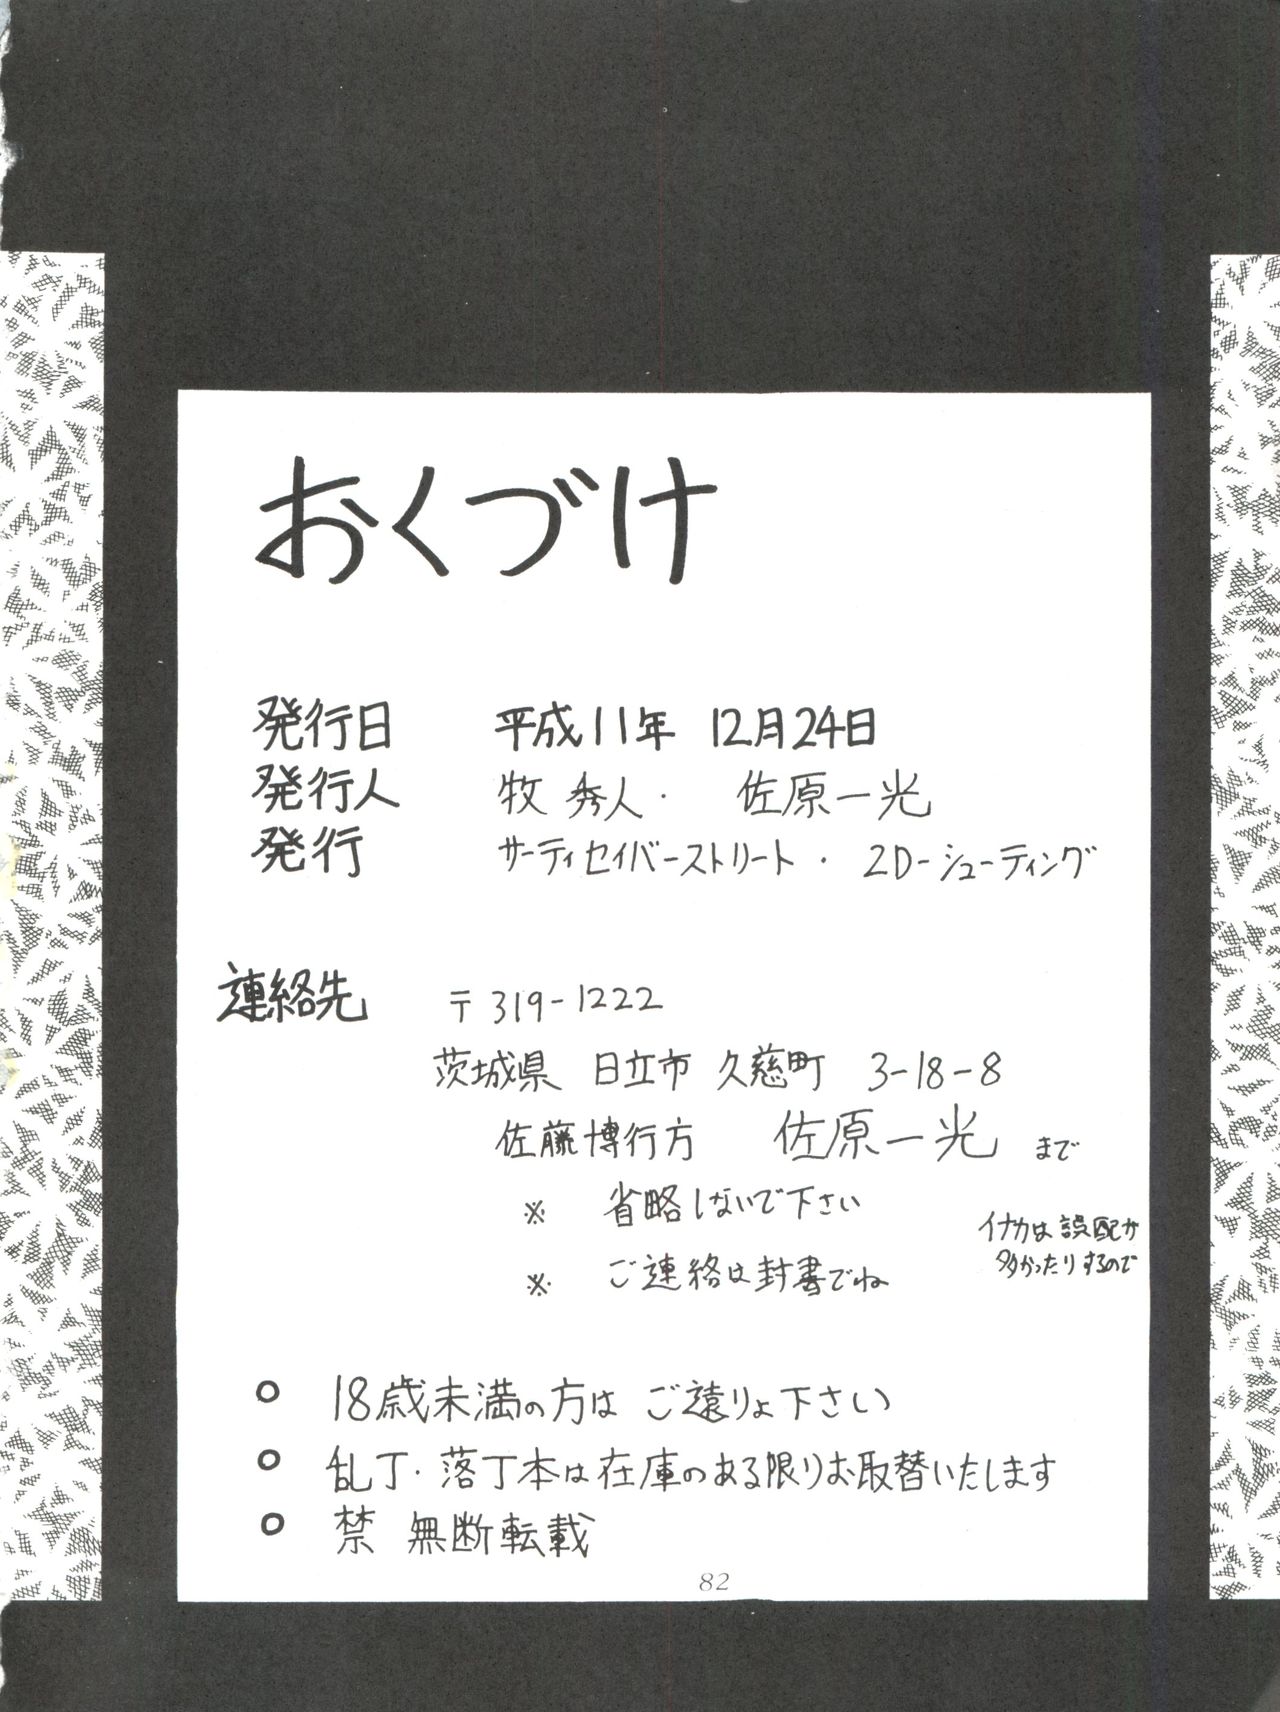 おくづけ
発行日 平成11年 12月24日
発行人 牧 秀人・ 佐原一光
発行 サーティセイバーストリート・ 2D-シューティング
連絡先 〒319-1222
茨城県 日立市 久慈町 3-18-8
佐藤博行方 佐原一光 まで
※ 省略しないで下さい
イナカは誤配が
多かったりするので
※ ご連絡は封書でね
○ 18歳未満の方は ご遠りょ下さい
○ 乱丁・落丁本は在庫のある限りお取替いたします
○ 禁 無断転載
82